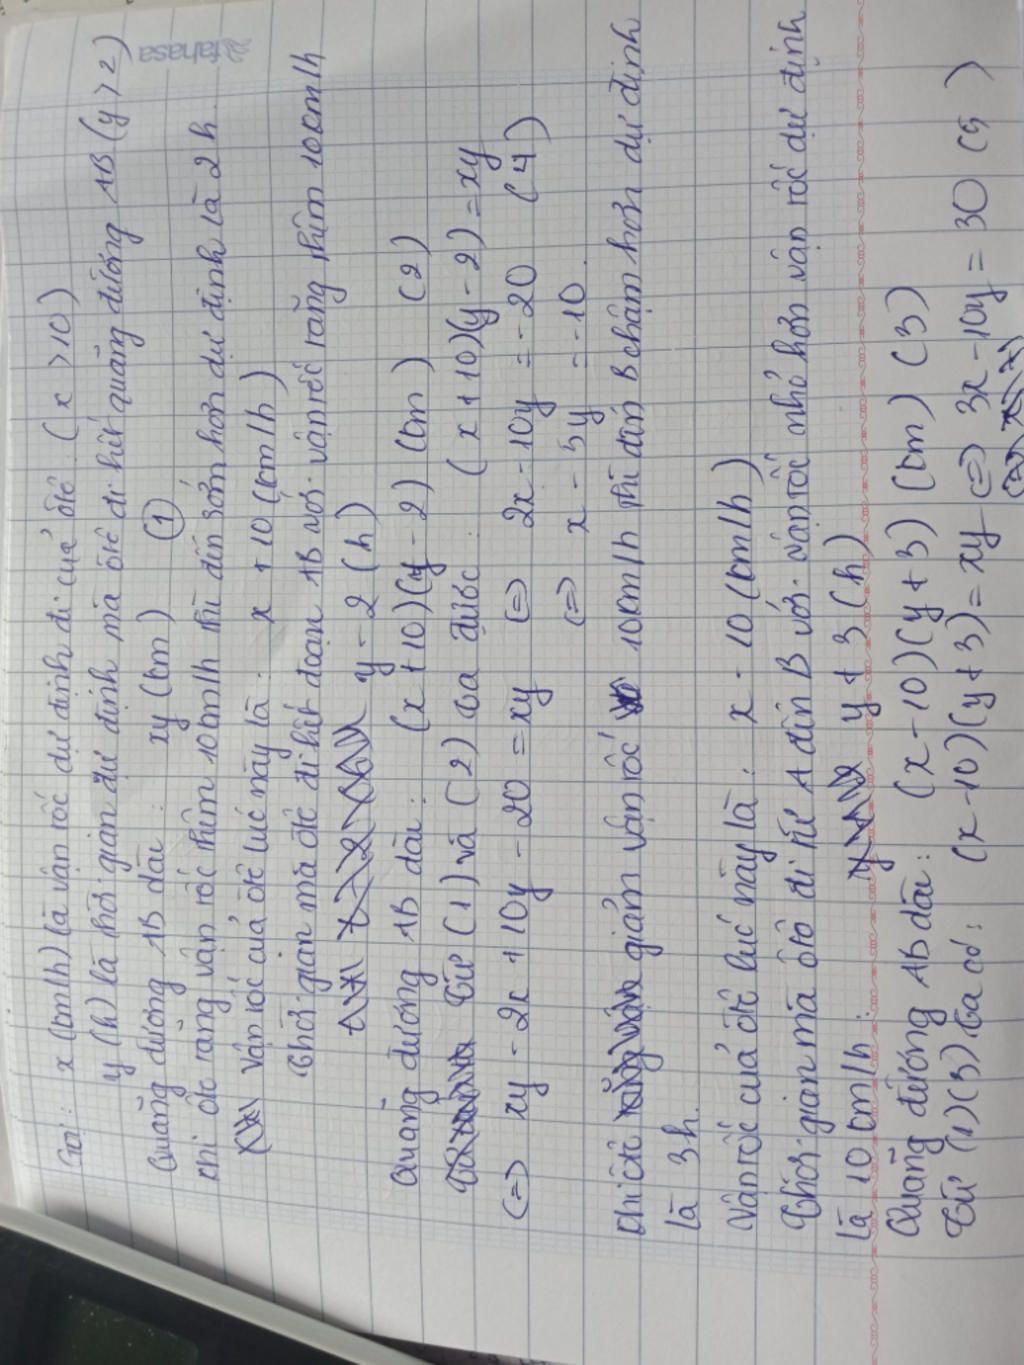 Gọi: x (km/h) là vận tốc dự định đi của ôtô. (x > 10)
y (h) là thời gian dự định mà ôtô đi hết quãng đường AB (y > 2)
fahasa
Quãng đường AB dài: xy (km) (1)
Khi ôtô tăng vận tốc thêm 10km/h thì đến sớm hơn dự định là 2h.
Vận tốc của ôtô lúc này là: x + 10 (km/h)
Thời gian mà ôtô đi hết đoạn AB với vận tốc tăng thêm 10km/h
y - 2 (h)
Quãng đường AB dài: (x + 10)(y - 2) (km) (2)
Từ (1) và (2) ta được: (x + 10)(y - 2) = xy
(=) xy - 2x + 10y - 20 = xy (=) 2x - 10y = -20 (4)
(=) x - 5y = -10.
Khi ôtô giảm vận tốc 10km/h thì đến B chậm hơn dự định
là 3h.
Vận tốc của ôtô lúc này là: x - 10 (km/h)
Thời gian mà ôtô đi từ A đến B với vận tốc nhỏ hơn vận tốc dự định
là 10 km/h: y + 3 (h)
Quãng đường AB dài: (x - 10)(y + 3) (km) (3)
Từ (1)(3) ta có: (x - 10)(y + 3) = xy (=) 3x - 10y = 30 (5)